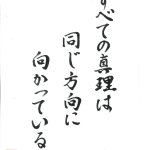 すべての真理は
同じ方向に
向かっている